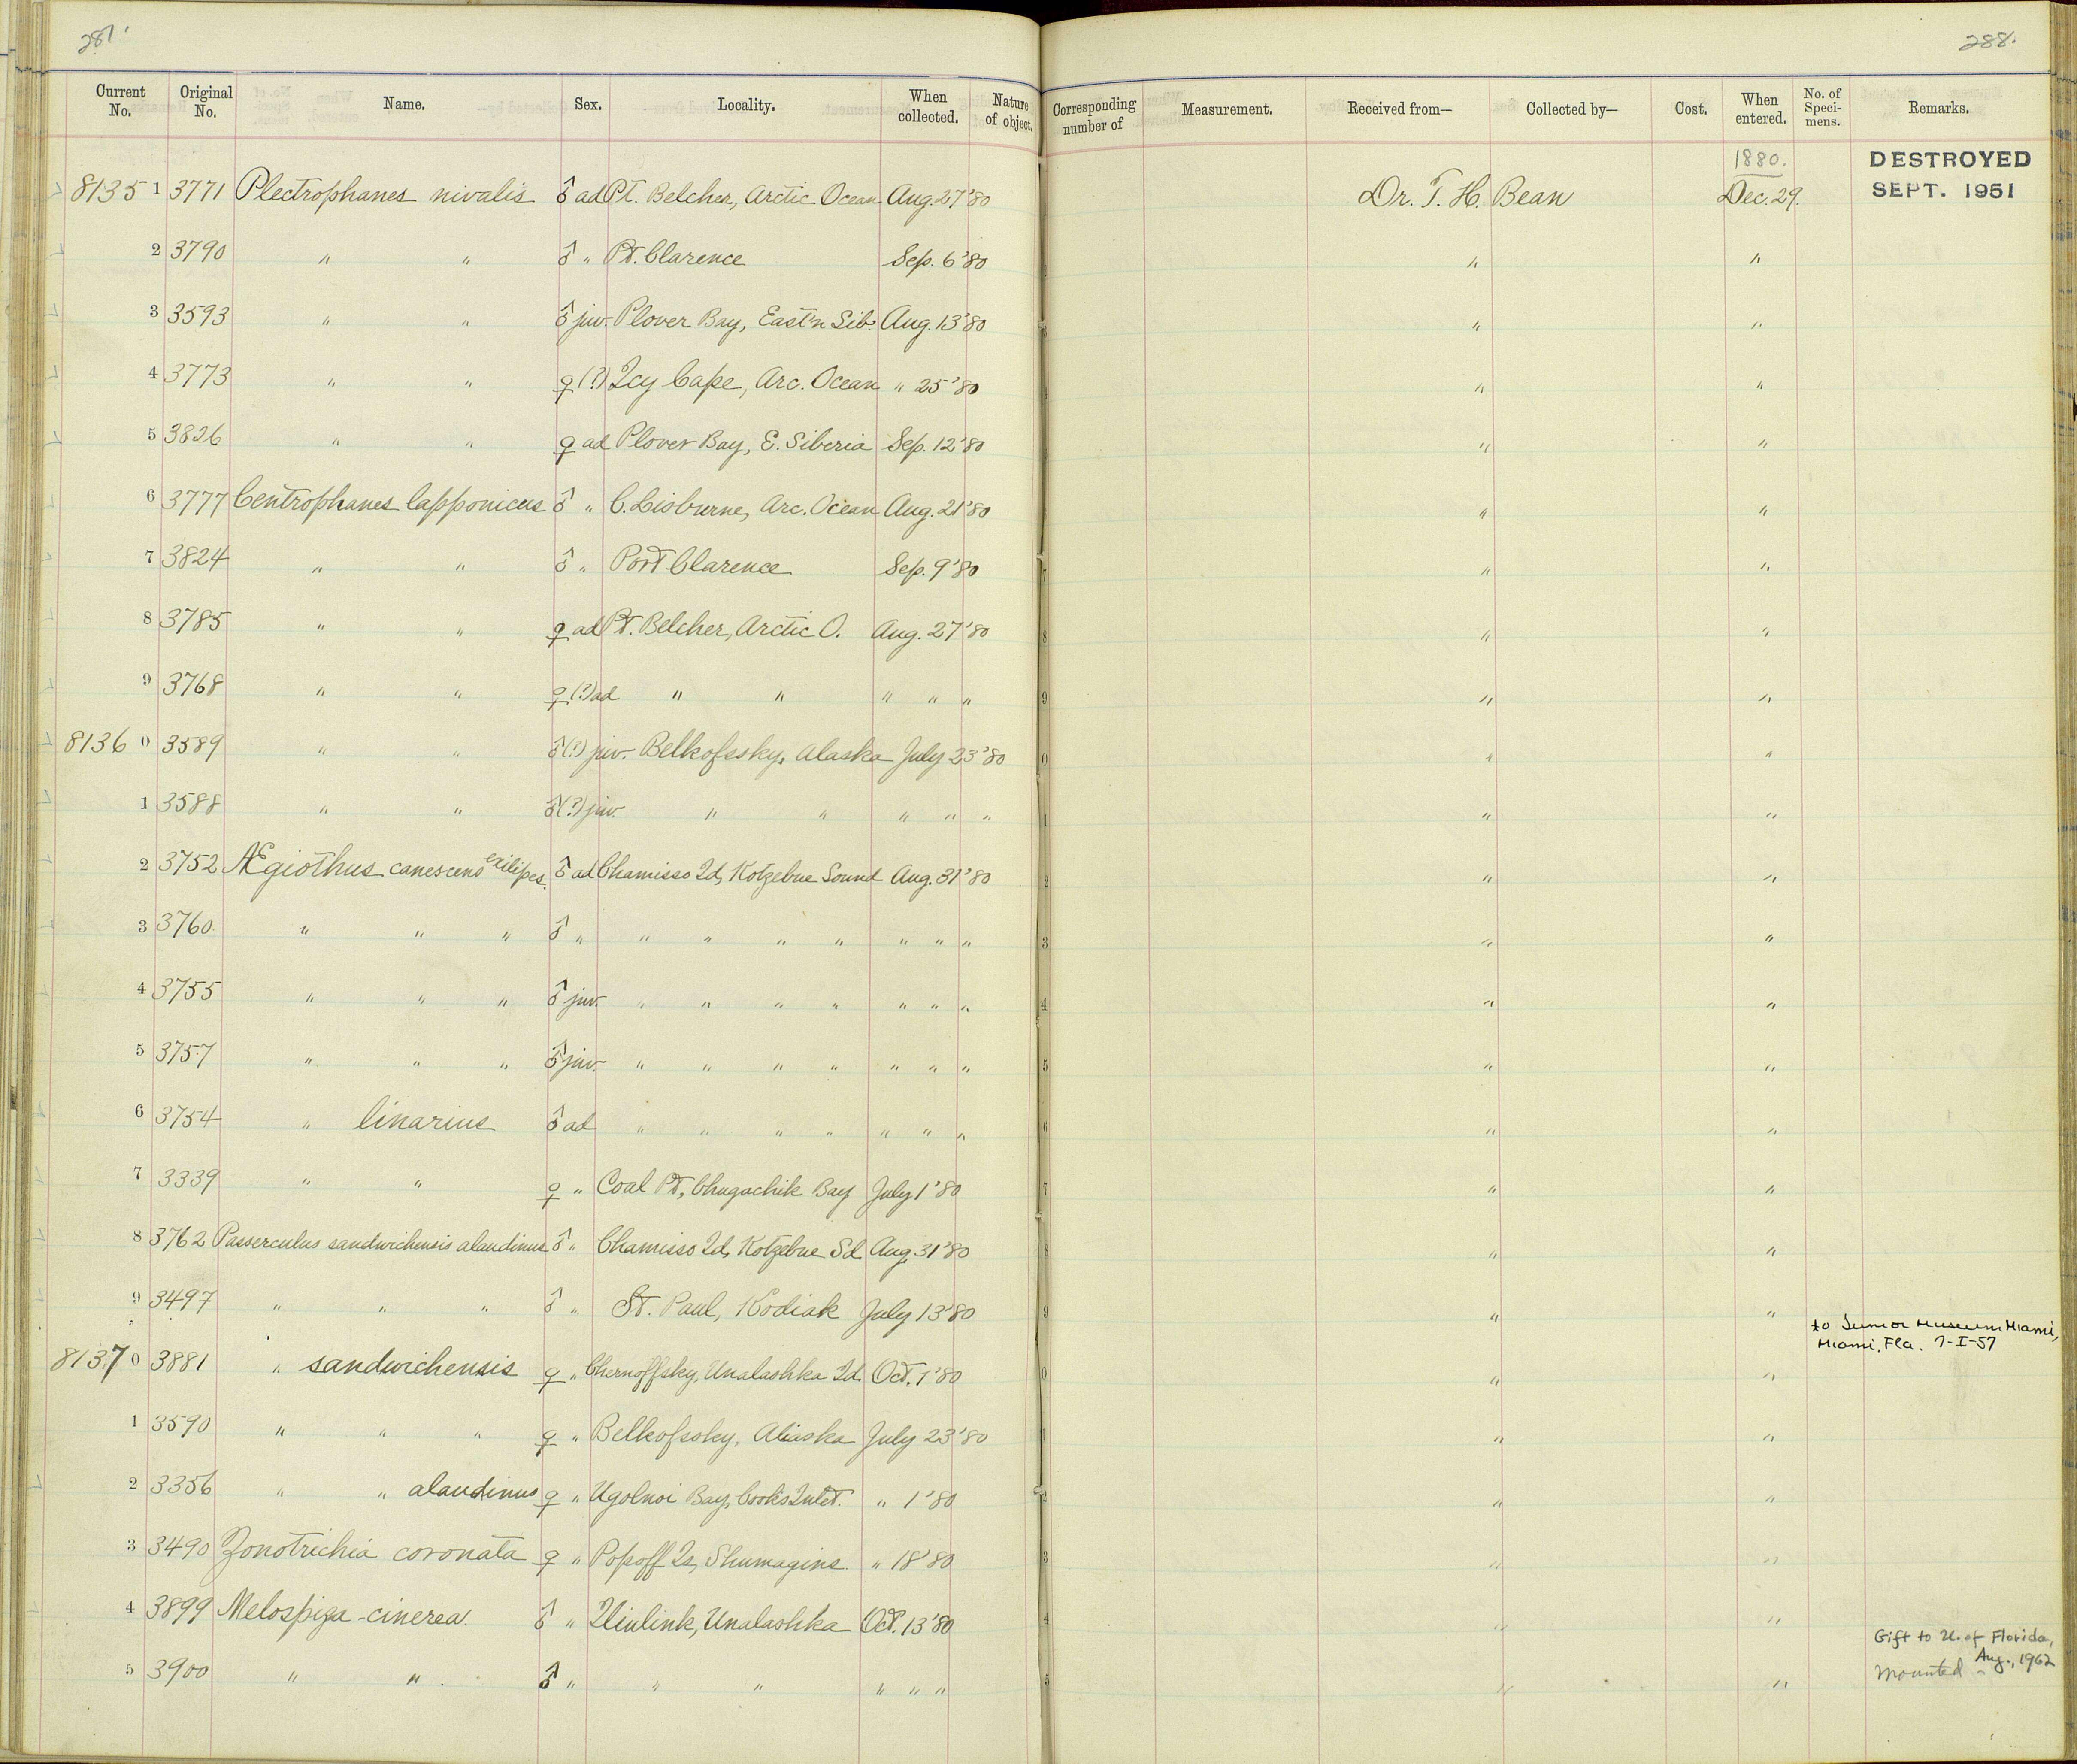 287.
288.
Current No. Original No. Name. Sex. Locality. When collected. Nature of object. Corresponding number of Measurement. Received from— Collected by— Cost. When entered. No. of Speci- mens. Remarks.
1880. DESTROYED
8135 1 3771 Plectrophanes nivalis ♂ ad Pt. Belcher, Arctic Ocean Aug. 27 '80 Dr. T. H. Bean Dec. 29. SEPT. 1951
2 3790 " " ♂ " Pt. Clarence Sep. 6 '80 " "
3 3593 " " ♂ juv. Plover Bay, East'n Sib. Aug. 13 '80 " "
4 3773 " " ♀ (?) Icy Cape, Arc. Ocean " 25 '80 " "
5 3826 " " ♀ ad Plover Bay, E. Siberia Sep. 12 '80 " "
6 3777 Centrophanes lapponicus ♂ " C. Lisburne, Arc. Ocean Aug. 21 '80 " "
7 3824 " " ♂ " Port Clarence Sep. 9 '80 " "
8 3785 " " ♀ ad Pt. Belcher, Arctic O. Aug. 27 '80 " "
9 3768 " " ♀ (?) ad " " " " " " "
8136 0 3589 " " ♂ (?) juv. Belkofssky, Alaska July 23 '80 " "
1 3588 " " ♂ (?) juv. " " " " " " "
2 3752 Ægiothus canescens exilipes. ♂ ad Chamisso Id, Kotzebue Sound Aug. 31 '80 " "
3 3760 " " " ♂ " " " " " " " " " "
4 3755 " " " ♂ juv. " " " " " " " " "
5 3757 " " " ♂ juv. " " " " " " " " "
6 3754 " linarius ♂ ad " " " " " " " " "
7 3339 " " ♀ " Coal Pt, Chugachik Bay July 1 '80 " "
8 3762 Passerculus sandwichensis alaudinus ♂ " Chamisso Id, Kotzebue Sd. Aug. 31 '80 " "
9 3497 " " " ♂ " St. Paul, Kodiak July 13 '80 " "
to Junior Museum Miami,
Miami, Fla. 7-I-57
8137 0 3881 " sandwichensis ♀ " Chernoffsky, Unalashka Id. Oct. 1 '80 " "
1 3590 " " " ♀ " Belkofssky, Aliaska July 23 '80 " "
2 3356 " " alaudinus ♀ " Ugolnoi Bay, Cook's Inlet. " 1 '80 " "
3 3490 Zonotrichia coronata ♀ " Popoff Is, Shumagins. " 18 '80 " "
4 3899 Melospiza cinerea. ♂ " Iliulink, Unalashka Oct. 13 '80 " "
Gift to U. of Florida,
Aug., 1962
5 3900 " " ♂ " " " " " " " " Mounted -